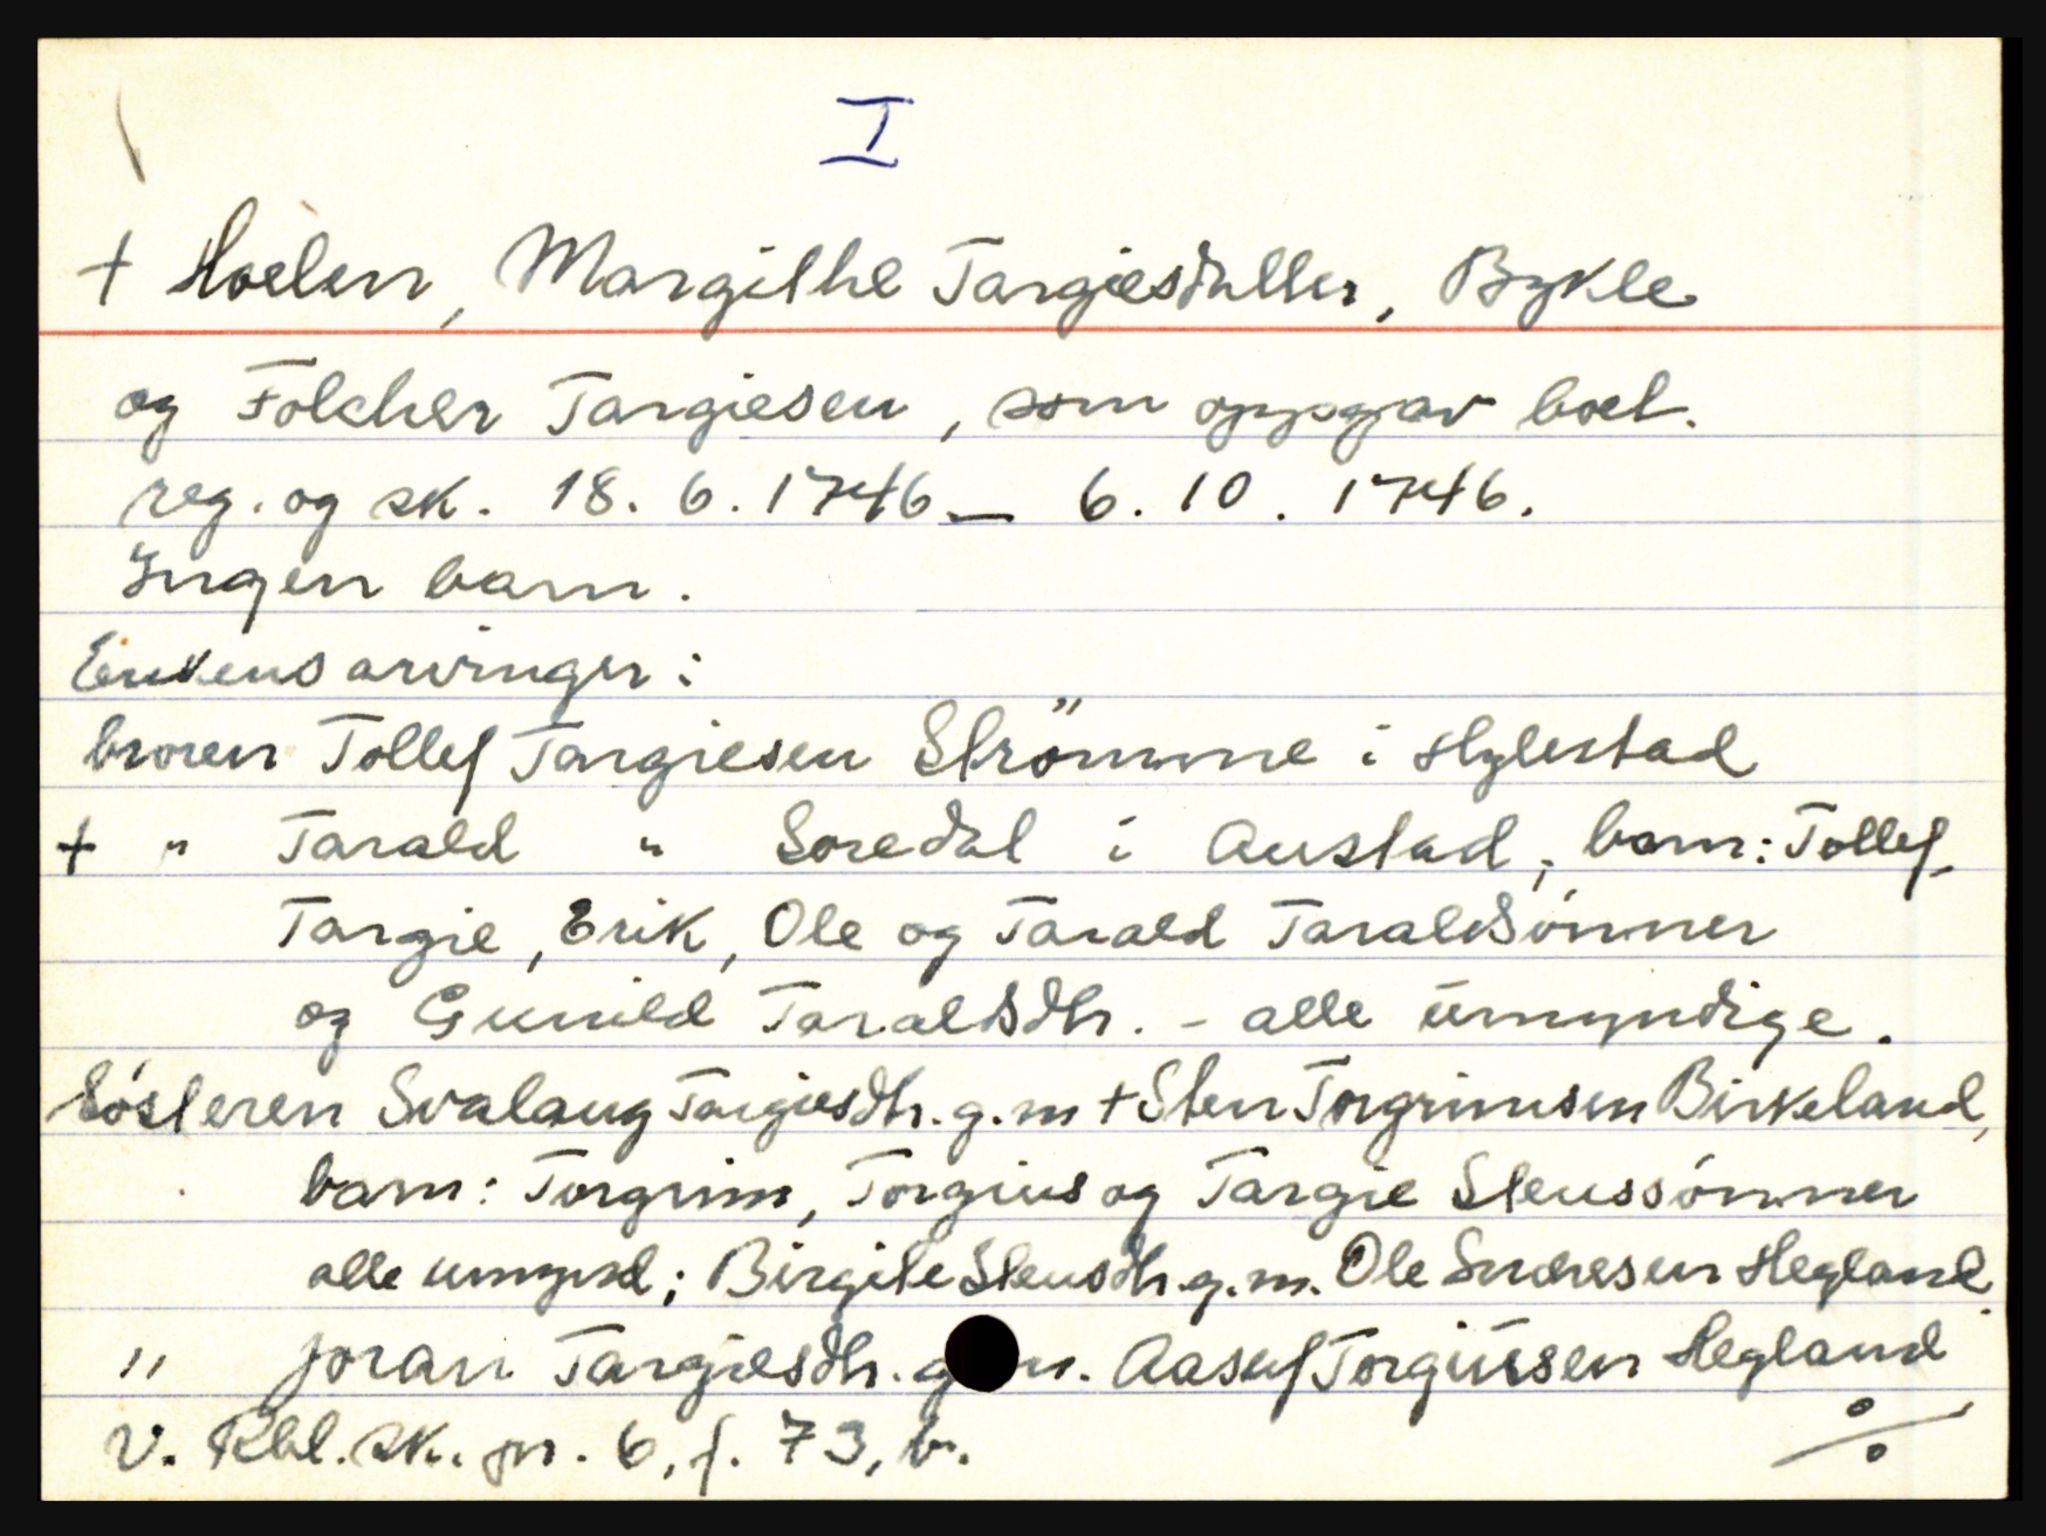 I
+ Hoelen, Margithe Targiesdatter, Bykle
og Folcher Targiesen, som oppgav boet.
reg. og sk. 18. 6. 1746 — 6. 10. 1746.
Ingen barn.
Enkens arvinger:
broren Tollef Targiesen Strömme i Hylestad
+ " Tarald " Soredal i Austad, barn: Tollef,
Targie, Erik, Ole og Tarald Taraldsönner
og Gunild Taraldsdtr. - alle umyndige.
Sösteren Svalaug Targiesdtr. g. m + Sten Torgrimsen Birkeland,
barn: Torgrim, Torgius og Targie Stenssönner
alle umynd; Birgite Stensdtr. g. m. Ole Sndresen Hegland
" Joran Targiesdtr. g m. Aasuf Torgiussen Hegland
V. Rbl. sk. pr. 6, f. 73, b. %